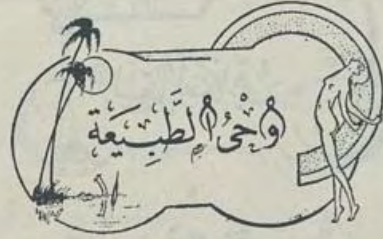 وَحْىُ الطَّبِيعَة